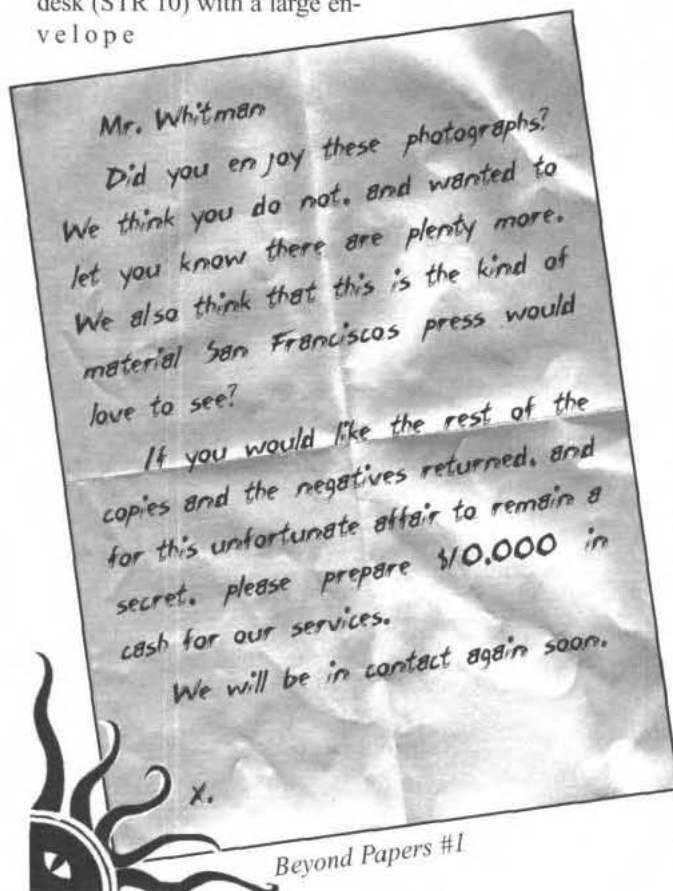 desk (STR 10) with a large en-
velope
Mr. Whitman
Did you enjoy these photographs?
We think you do not. and wanted to
let you know there are plenty more.
We also think that this is the kind of
material San Franciscos press would
love to see?
If you would like the rest of the
copies and the negatives returned. and
for this unfortunate affair to remain a
secret. please prepare $10.000 in
cash for our services.
We will be in contact again soon.
X.
Beyond Papers #1